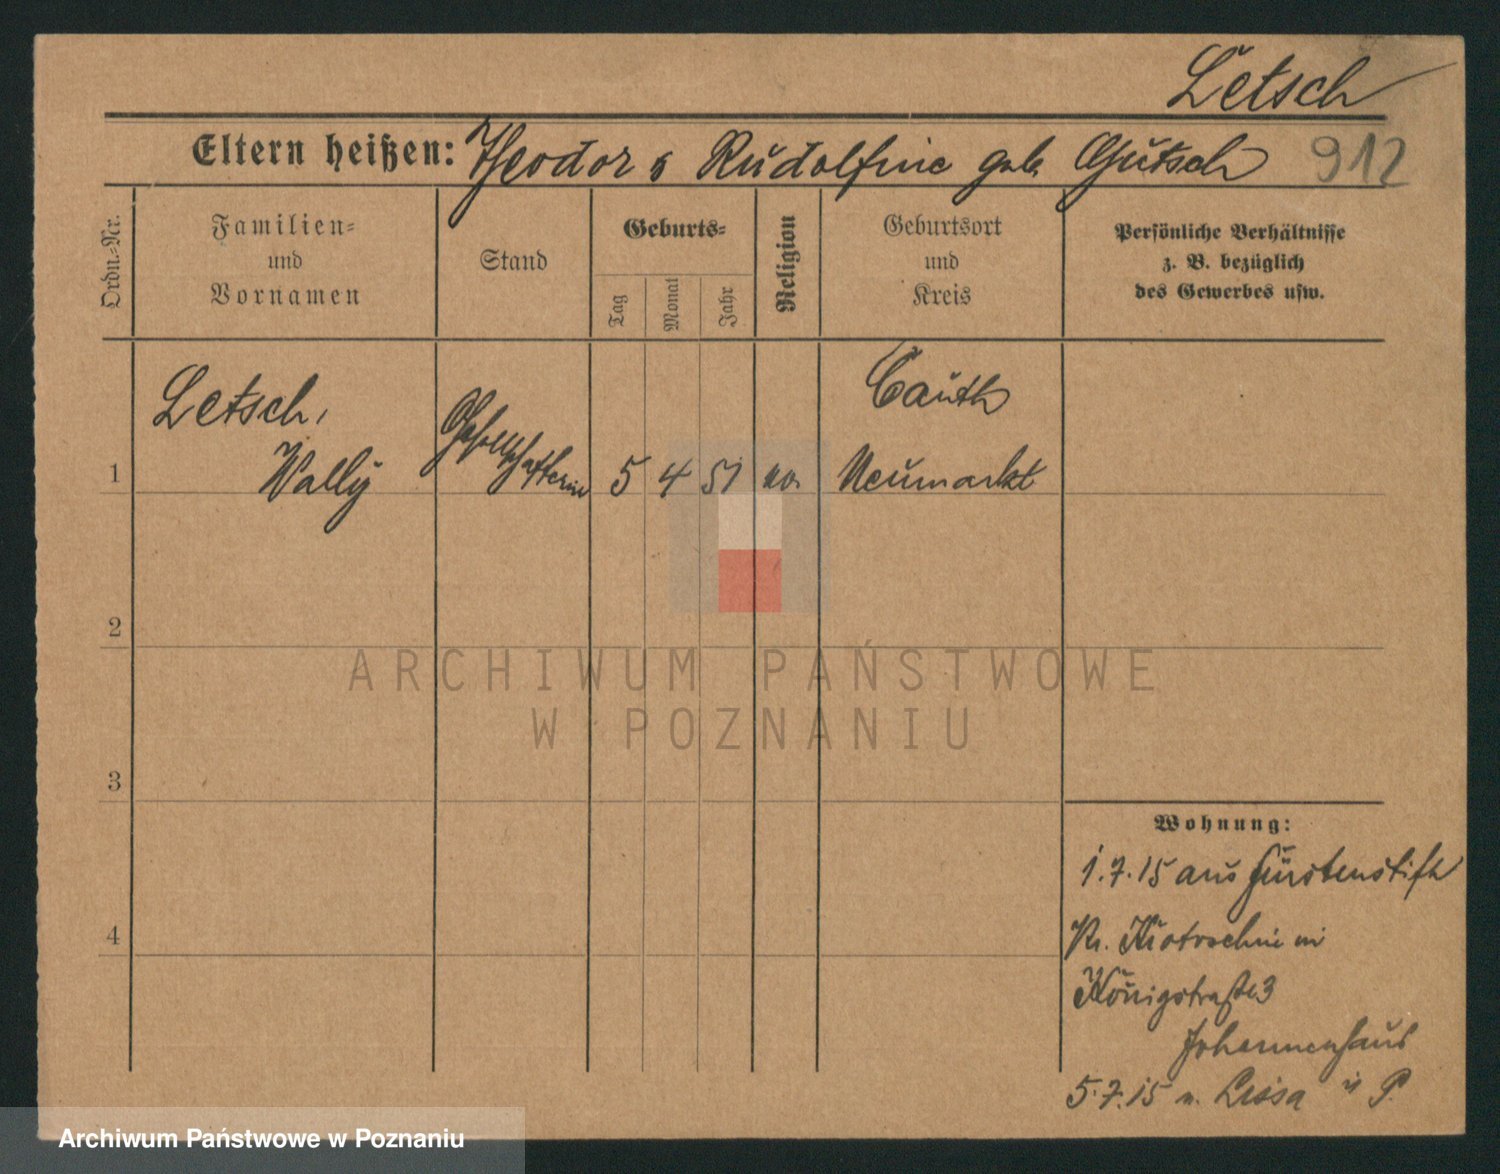 Letsch
Eltern heißen: Theodor & Rudolfine geb. Gutsch 912
Ordn.-Nr.
Familien-
und
Vornamen
Stand
Geburts-
Tag
Monat
Jahr
Religion
Geburtsort
und
Kreis
Persönliche Verhältnisse
z. B. bezüglich
des Gewerbes usw.
1
Letsch,
Wally
Gesellschafterin
5 4 51
Canth
Neumarkt
2
3
4
Wohnung:
1.7.15 aus Fürstenstift
Kr. Krotoschin in
Königstraße 3
Johannenhaus
5.7.15 n. Lissa i P.
ARCHIWUM PAŃSTWOWE
W POZNANIU
Archiwum Państwowe w Poznaniu